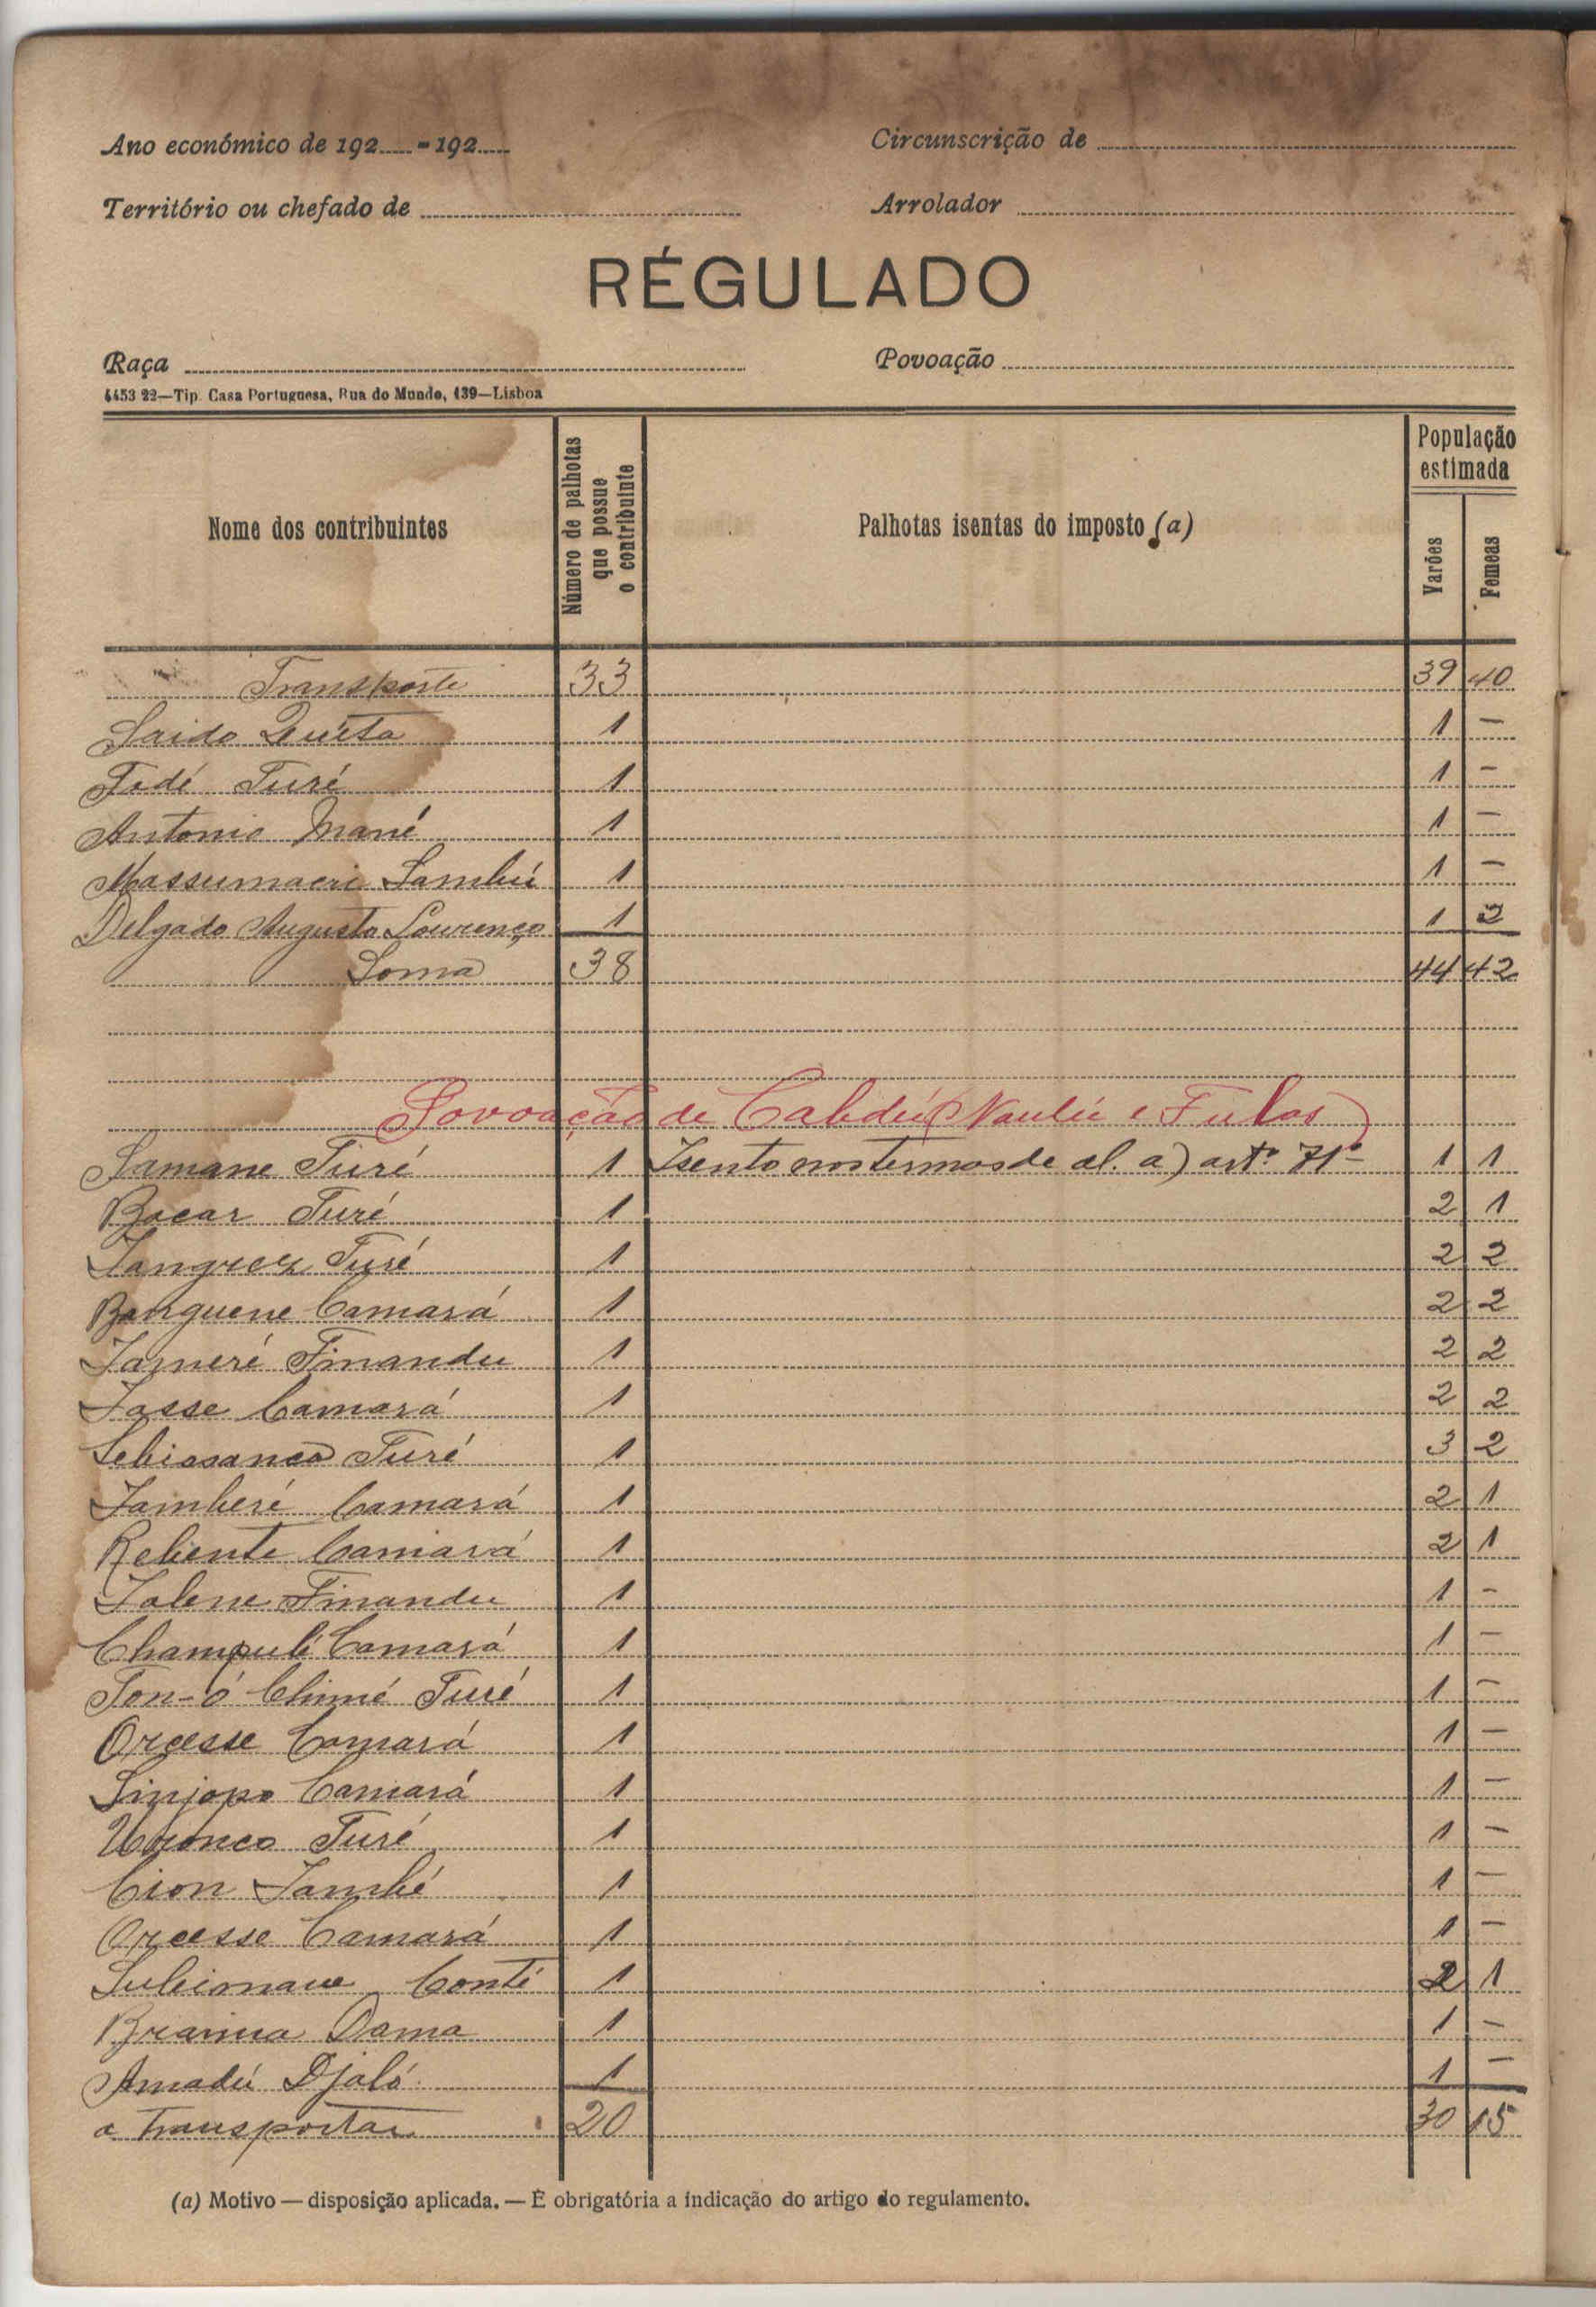 Ano económico de 192.....-192.....
Circunscrição de
Território ou chefado de
Arrolador
RÉGULADO
Raça
Povoação
4453 22—Tip. Casa Portuguesa, Rua do Mundo, 139—Lisboa
Nome dos contribuintes
Número de palhotas que possue o contribuinte
Palhotas isentas do imposto (a)
População estimada
Varões
Femeas
Transporte 33 39 40
Saido Queita 1 1 —
Fodé Turé 1 1 —
Antonio Mané 1 1 —
Massumaeri Sambú 1 1 —
Delgado Augusto Lourenço 1 1 2
Soma 38 44 42
Povoação de Cabdú (Naulú e Fulas)
Samane Turé 1 Isento nos termos de al. a) artº 71º 1 1
Bocar Turé 1 2 1
Turé 1 2 2
Banguene Camará 1 2 2
Jameré Finandu 1 2 2
Jasse Camará 1 2 2
Turé 1 3 2
Jamberé Camará 1 2 1
Rebente Camará 1 2 1
Jalene Finandu 1 1 -
Champulé Camará 1 1 —
Ton-ó Chimé Turé 1 1 —
Orcesse Camará 1 1 —
Sinjopo Camará 1 1 —
Turé 1 1 —
Cion Jambé 1 1 —
Orcesse Camará 1 1 —
Suleimane Conté 1 2 1
Braima Dama 1 1 -
Amadú Djaló 1 1 —
a Transportar 20 30 15
(a) Motivo — disposição aplicada. — É obrigatória a indicação do artigo do regulamento.